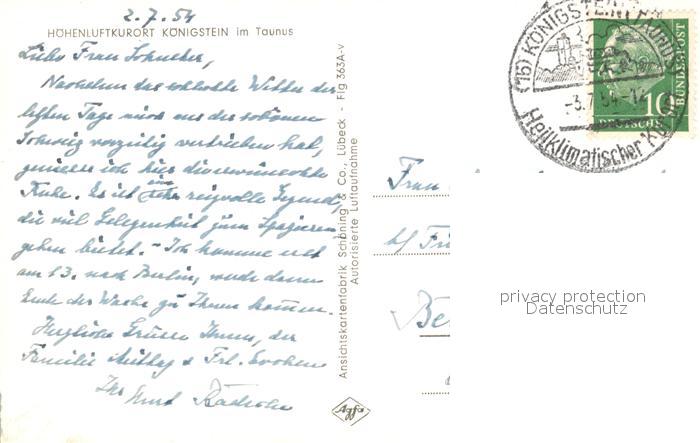 2.7.54
HÖHENLUFTKURORT KÖNIGSTEIN im Taunus
Liebe Frau
Nachdem das schlechte Wetter der
letzten Tage mich aus der schönen
Schweiz vorzeitig vertrieben hat,
geniesse ich hier die erwünschte
Ruhe. Es ist eine reizvolle Gegend,
die viel Gelegenheit zum Spazieren
gehen bietet. - Ich komme erst
am 13. nach Berlin, werde dann
Ende der Woche zu Ihnen kommen.
Herzliche Grüsse Ihnen, der
Familie & Frl.
Ihr
Ansichtskartenfabrik Schöning & Co., Lübeck - Flg 363A-V
Autorisierte Luftaufnahme
Agfa
(16) KÖNIGSTEIN (TAUNUS)
-3.7.54-14
Heilklimatischer
10
DEUTSCHE
BUNDESPOST
Frau
b/
Be
privacy protection
Datenschutz